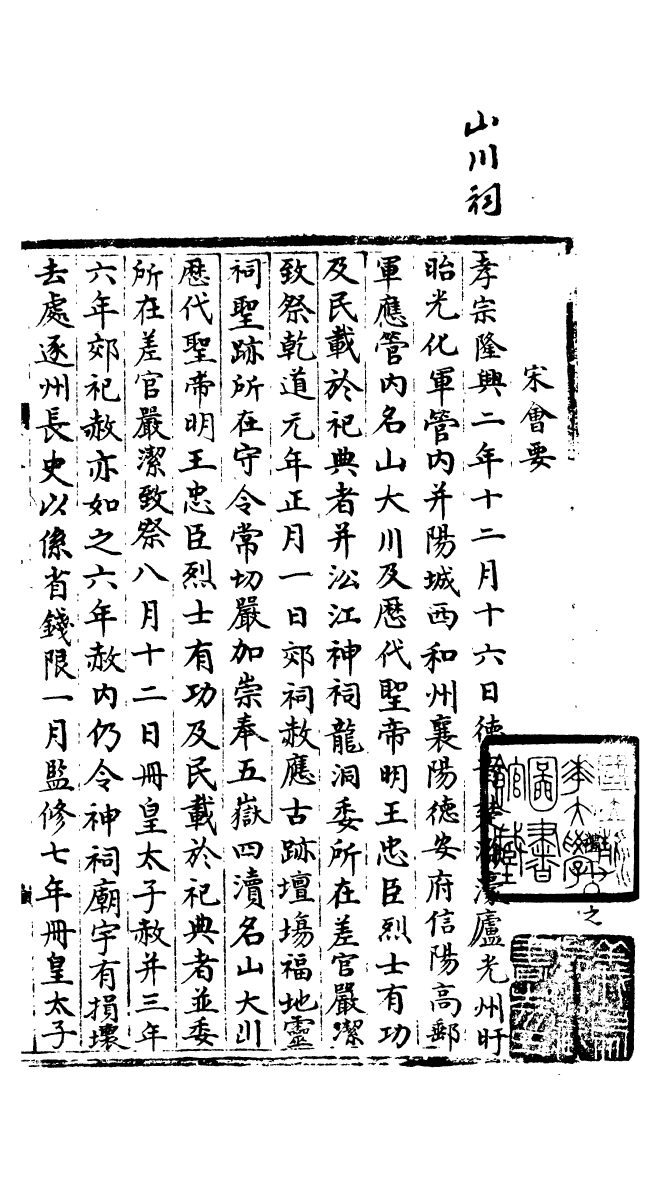 山川祠
宋會要
孝宗隆興二年十二月十六日德音楚滁濠廬光州盱
眙光化軍管内并陽城西和州襄陽德安府信陽高郵
軍應管内名山大川及歷代聖帝明王忠臣烈士有功
及民載於祀典者并㳂江神祠龍洞委所在差官嚴潔
致祭乾道元年正月一日郊祠赦應古跡壇塲福地靈
祠聖跡所在守令常切嚴加崇奉五嶽四瀆名山大川
歷代聖帝明王忠臣烈士有功及民載於祀典者並委
所在差官嚴潔致祭八月十二日冊皇太子赦并三年
六年郊祀赦亦如之六年赦内仍令神祠廟宇有損壞
去處逐州長史以係省錢限一月監修七年冊皇太子
之